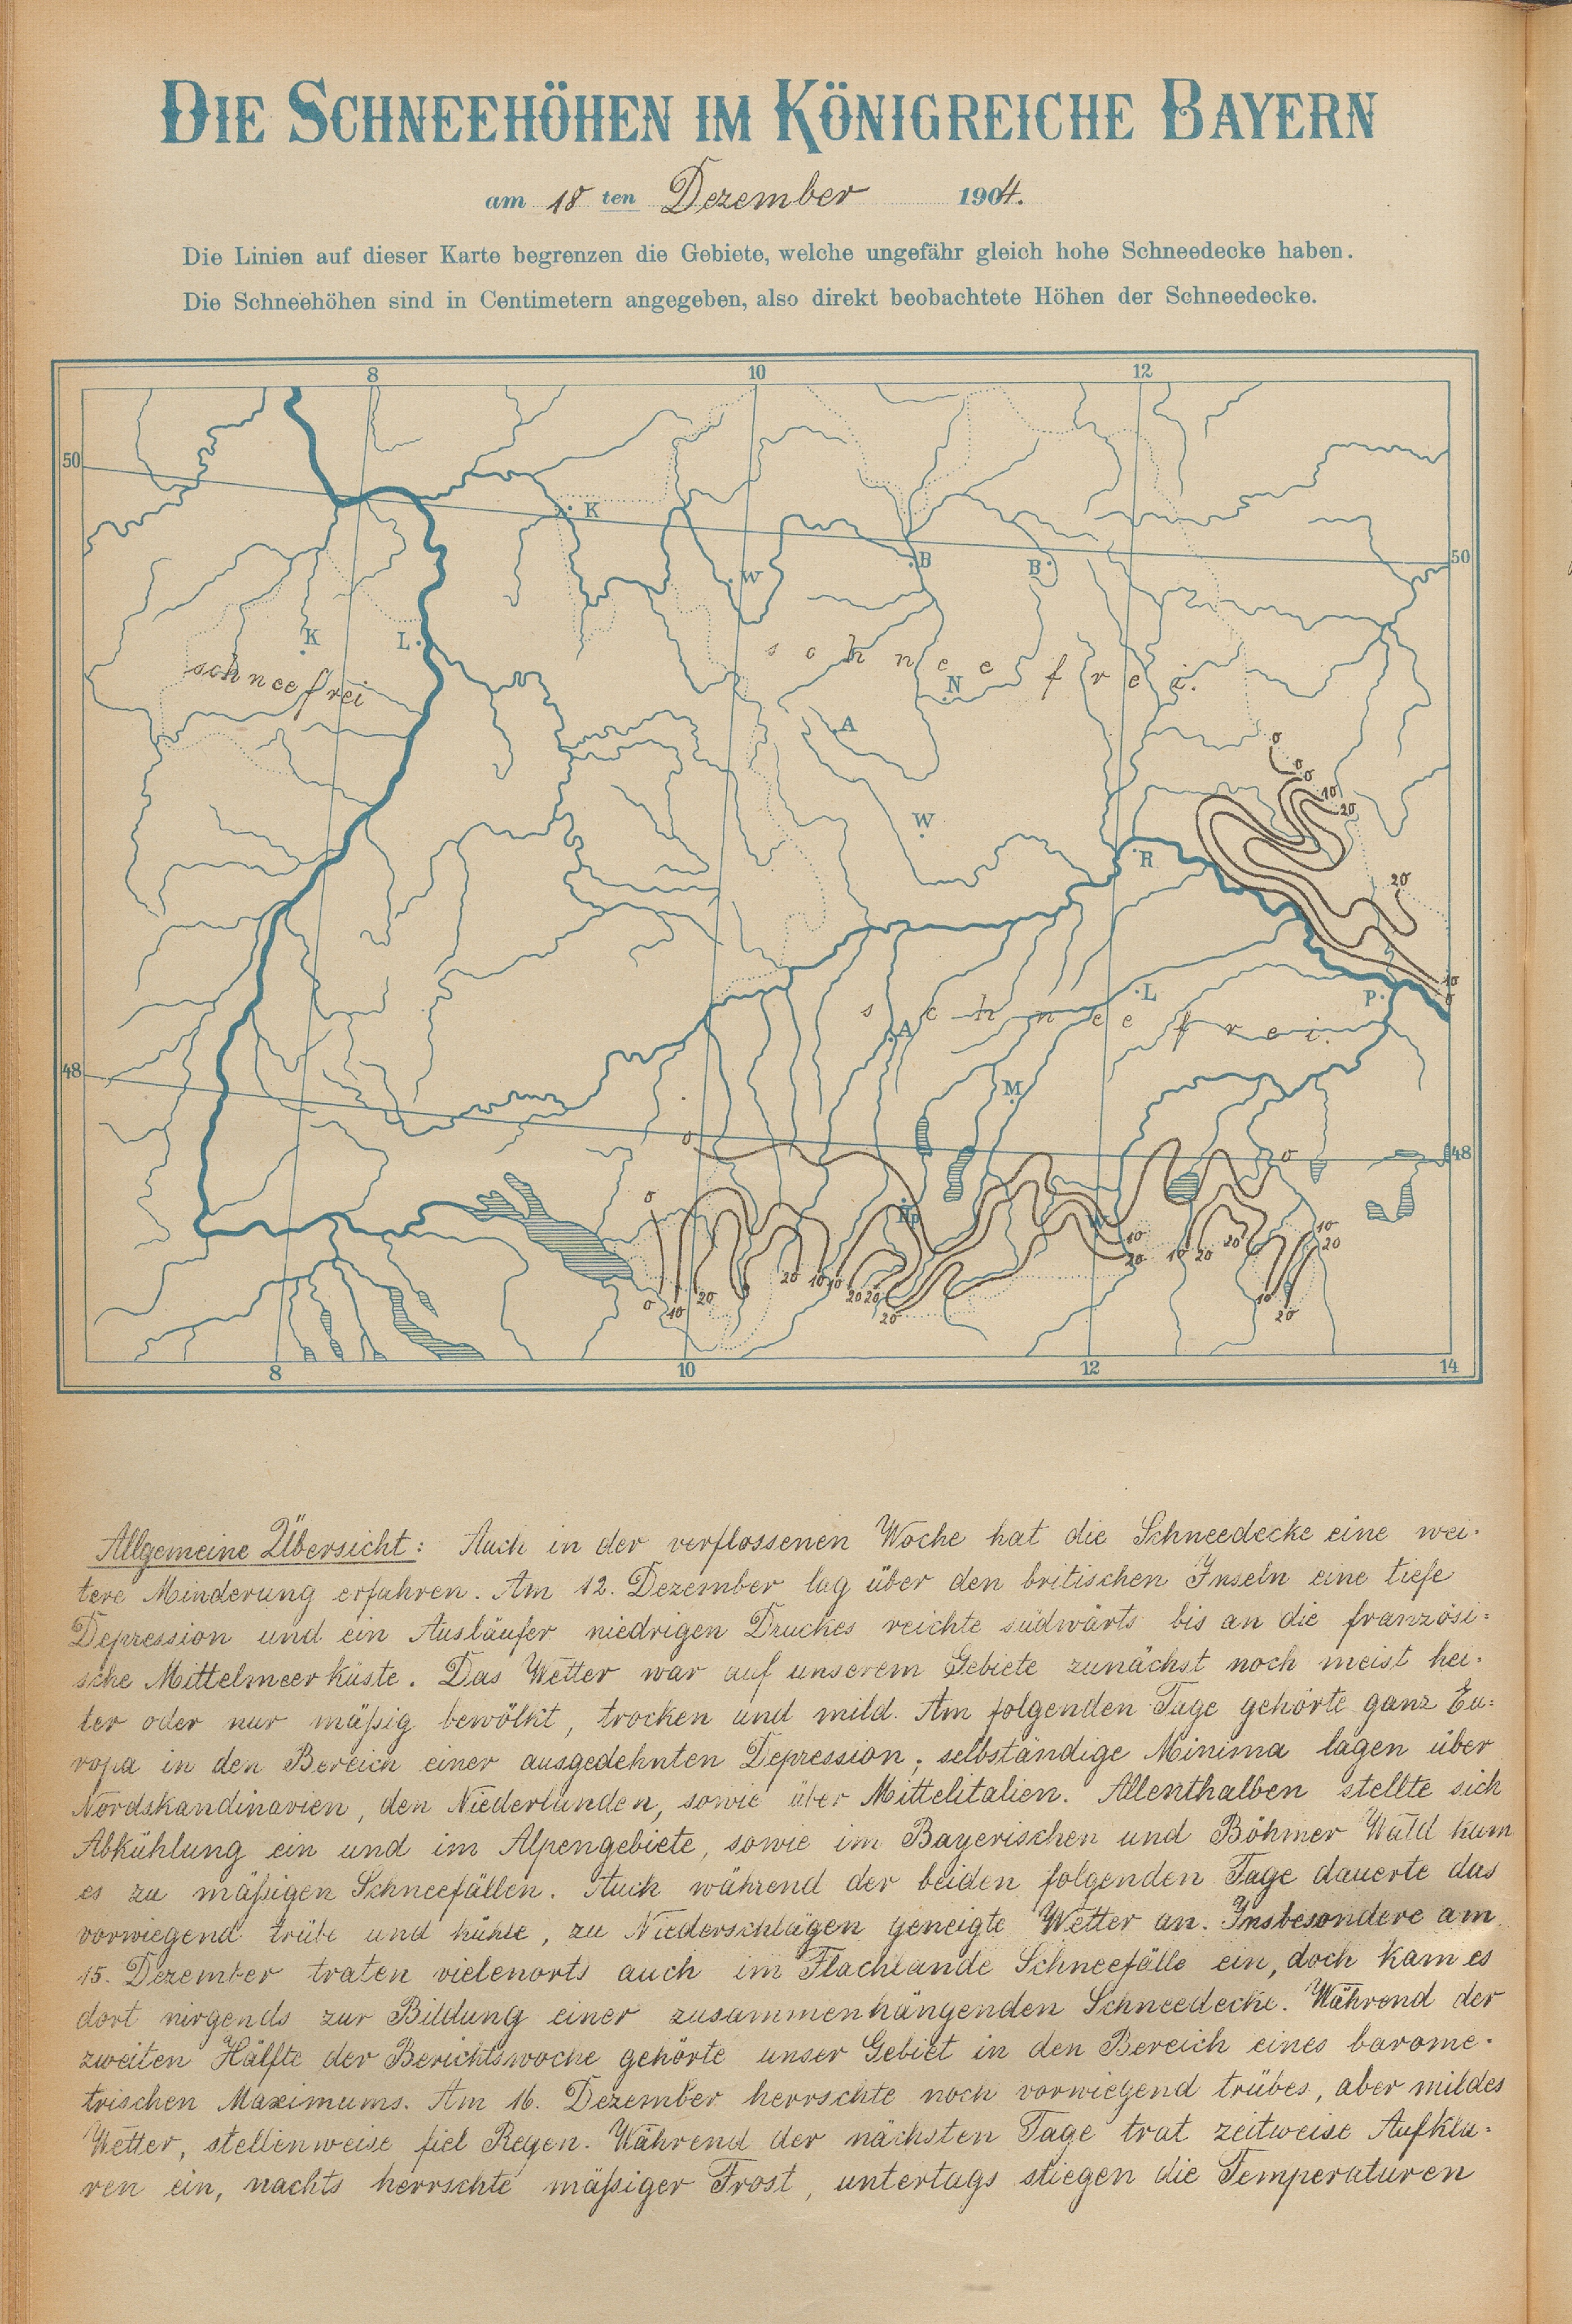 DIE SCHNEEHÖHEN IM KÖNIGREICHE BAYERN
am 18 ten Dezember 1904.
Die Linien auf dieser Karte begrenzen die Gebiete, welche ungefähr gleich hohe Schneedecke haben.
Die Schneehöhen sind in Centimetern angegeben, also direkt beobachtete Höhen der Schneedecke.
8 10 12
50
K
50
B B
W
K L
schneefrei
schneefrei.
N
A
0
0 0
10 20
W
R
20
10
0
L P
schneefrei.
A
48
M
0
0 48
0
10 20
10 20 10 20 20
0 10 20 20 10 10 20 20 20 10 20
8 10 12 14
Allgemeine Übersicht: Auch in der verflossenen Woche hat die Schneedecke eine wei-
tere Minderung erfahren. Am 12. Dezember lag über den britischen Inseln eine tiefe
Depression und ein Ausläufer niedrigen Druckes reichte südwärts bis an die französi-
sche Mittelmeerküste. Das Wetter war auf unserem Gebiete zunächst noch meist hei-
ter oder nur mäßig bewölkt, trocken und mild. Am folgenden Tage gehörte ganz Eu-
ropa in den Bereich einer ausgedehnten Depression; selbständige Minima lagen über
Nordskandinavien, den Niederlanden, sowie über Mittelitalien. Allenthalben stellte sich
Abkühlung ein und im Alpengebiete, sowie im Bayerischen und Böhmer Wald kam
es zu mäßigen Schneefällen. Auch während der beiden folgenden Tage dauerte das
vorwiegend trübe und kühle, zu Niederschlägen geneigte Wetter an. Insbesondere am
15. Dezember traten vielenorts auch im Flachlande Schneefälle ein, doch kam es
dort nirgends zur Bildung einer zusammenhängenden Schneedecke. Während der
zweiten Hälfte der Berichtswoche gehörte unser Gebiet in den Bereich eines barome-
trischen Maximums. Am 16. Dezember herrschte noch vorwiegend trübes, aber mildes
Wetter, stellenweise fiel Regen. Während der nächsten Tage trat zeitweise Aufkla-
ren ein, nachts herrschte mäßiger Frost, untertags stiegen die Temperaturen